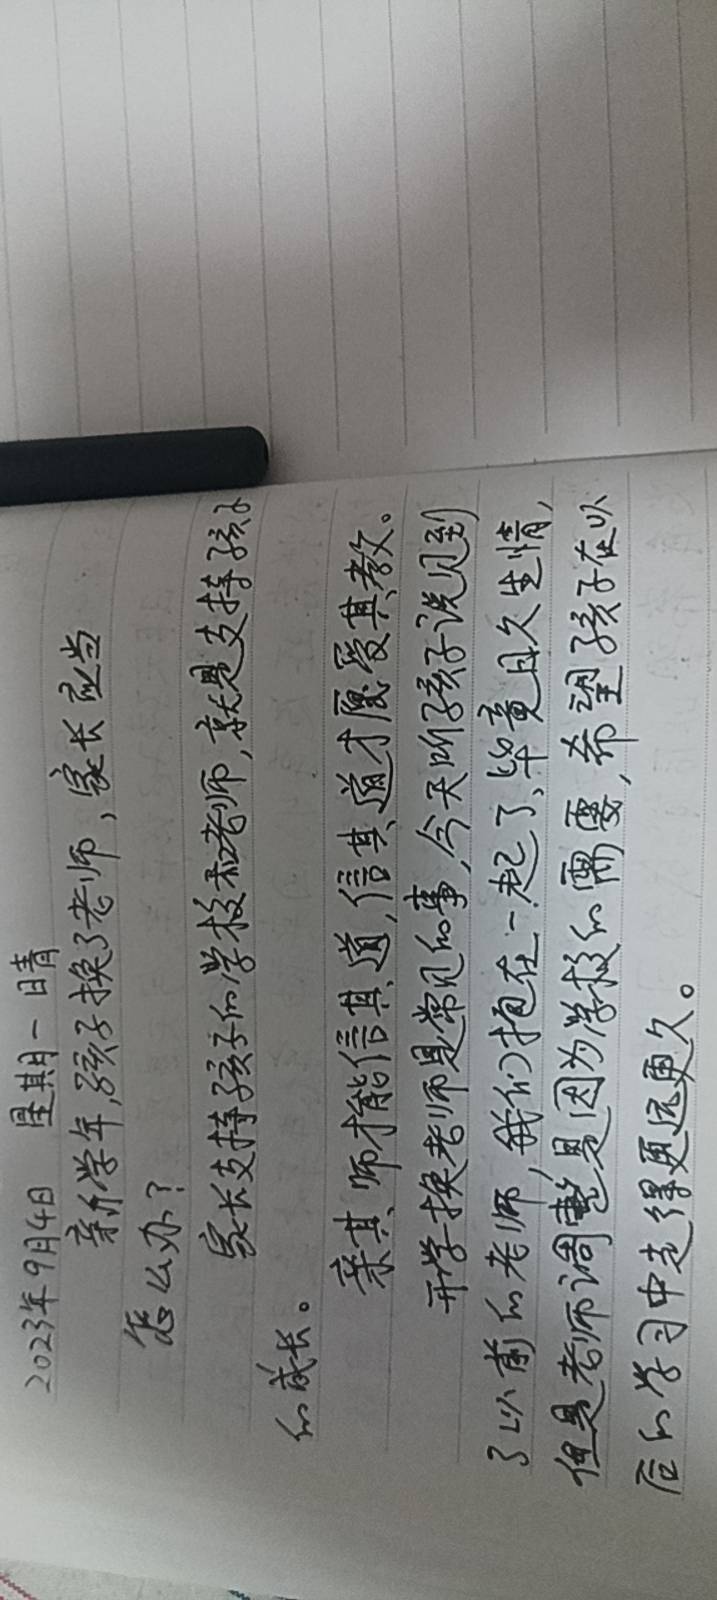 2023年9月4日 星期一 日青
新学年,孩子换了老师,家长应当
怎么办?
家长支持孩子的学校和老师,就是支持孩子
的成长。
亲其师才能信其道,信其道才愿受其教。
开学换老师是常见的事,今天听孩子说见到
了以前的老师,我们抱在一起了,毕竟日久生情,
但是老师调整是因为学校的需要,希望孩子在以
后的学习中走得更远更久。